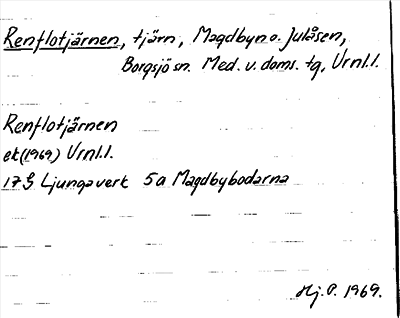 Renflotjärnen, tjärn, Magdbyn o. Julåsen,
Borgsjö sn. Med. v. doms. tg, Vrnl.l.
Renflotjärnen
ek (1969) Vrnl.l.
17 G Ljungaverk 5a Magdbybodarna
Hj. P. 1969.